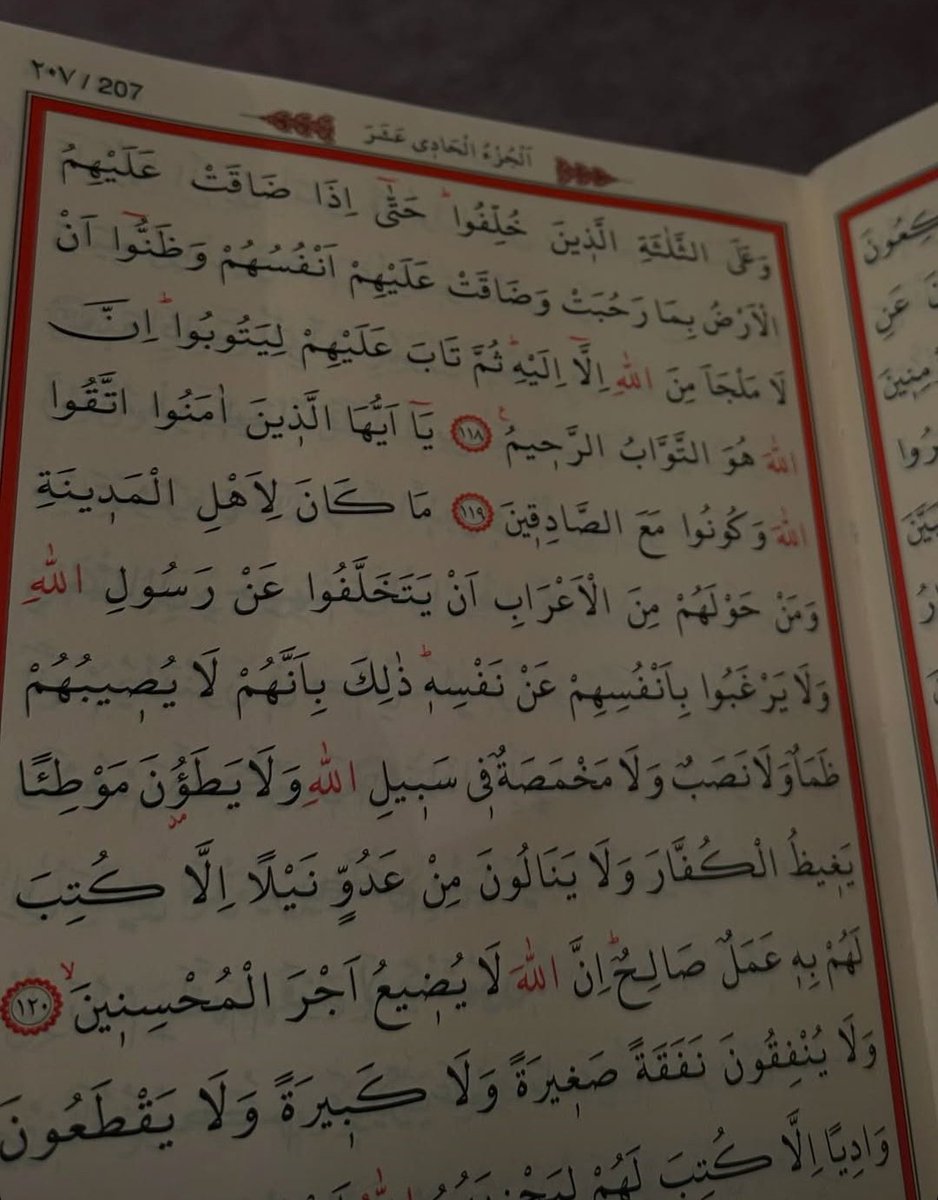 ٢٠٧ / 207
اَلْجُزْءُ الْحَادِى عَشَرَ
وَعَلَى الثَّلٰثَةِ الَّذ۪ينَ خُلِّفُواۜ حَتّٰٓى اِذَا ضَاقَتْ عَلَيْهِمُ
الْاَرْضُ بِمَا رَحُبَتْ وَضَاقَتْ عَلَيْهِمْ اَنْفُسُهُمْ وَظَنُّٓوا اَنْ
لَا مَلْجَاَ مِنَ اللّٰهِ اِلَّٓا اِلَيْهِۜ ثُمَّ تَابَ عَلَيْهِمْ لِيَتُوبُواۜ اِنَّ
اللّٰهَ هُوَ التَّوَّابُ الرَّح۪يمُ ۟ ﴿١١٨﴾ يَٓا اَيُّهَا الَّذ۪ينَ اٰمَنُوا اتَّقُوا
اللّٰهَ وَكُونُوا مَعَ الصَّادِق۪ينَ ﴿١١٩﴾ مَا كَانَ لِاَهْلِ الْمَد۪ينَةِ
وَمَنْ حَوْلَهُمْ مِنَ الْاَعْرَابِ اَنْ يَتَخَلَّفُوا عَنْ رَسُولِ اللّٰهِ
وَلَا يَرْغَبُوا بِاَنْفُسِهِمْ عَنْ نَفْسِه۪ۜ ذٰلِكَ بِاَنَّهُمْ لَا يُص۪يبُهُمْ
ظَمَاٌ وَلَا نَصَبٌ وَلَا مَخْمَصَةٌ ف۪ي سَب۪يلِ اللّٰهِ وَلَا يَطَؤُ۫نَ مَوْطِئًا
يَغ۪يظُ الْكُفَّارَ وَلَا يَنَالُونَ مِنْ عَدُوٍّ نَيْلًا اِلَّا كُتِبَ
لَهُمْ بِه۪ عَمَلٌ صَالِحٌۜ اِنَّ اللّٰهَ لَا يُض۪يعُ اَجْرَ الْمُحْسِن۪ينَۙ ﴿١٢٠﴾
وَلَا يُنْفِقُونَ نَفَقَةً صَغ۪يرَةً وَلَا كَب۪يرَةً وَلَا يَقْطَعُونَ
وَادِيًا اِلَّا كُتِبَ لَهُمْ